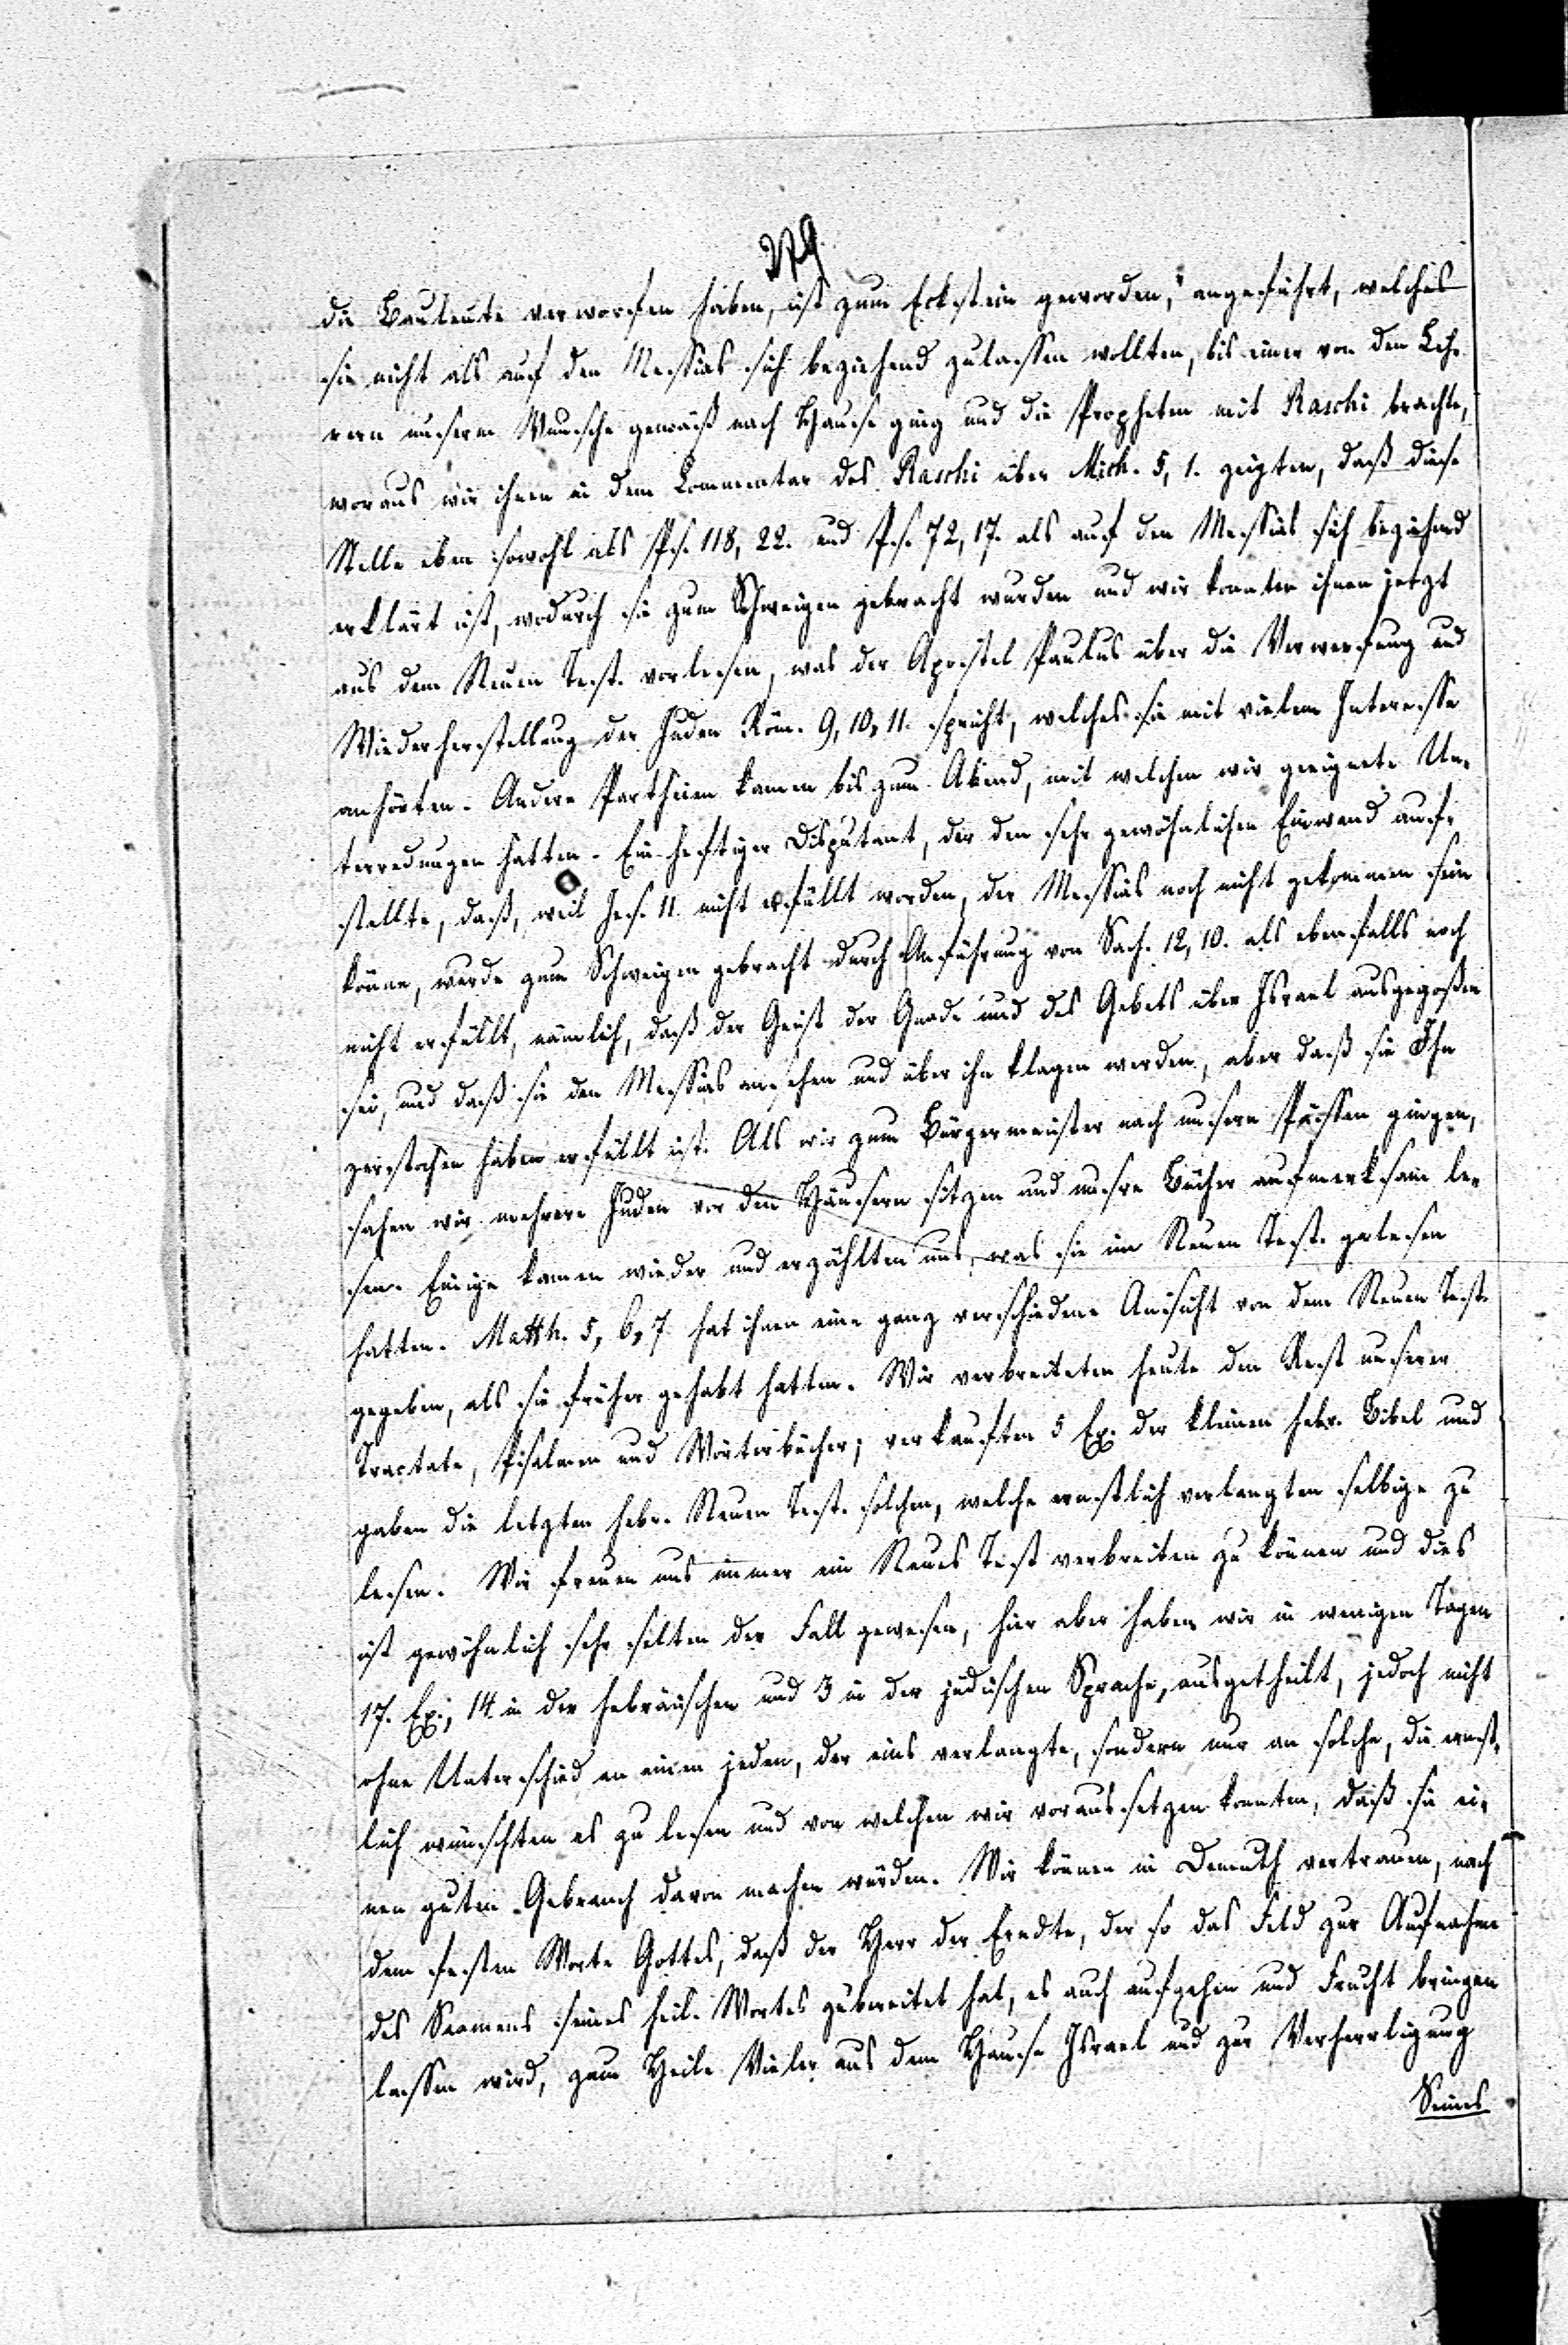 279
die Bauleute verworfen haben, ist zum Eckstein geworden," angeführt, welches
sie nicht als auf den Messias sich beziehend zulassen wollten, bis einer von den Leh-
rern unserm Wunsche gemäß nach Hause ging und die Propheten mit Raschi brachte,
woraus wir ihnen in dem Commentar des Raschi über Mich. 5, 1. zeigten, daß diese
Stelle eben sowohl als Ps. 118, 22. und Ps. 72, 17. als auf den Messias sich beziehend
erklärt ist, wodurch sie zum Schweigen gebracht wurden und wir konnten ihnen jetzt
aus dem Neuen Test. vorlesen, was der Apostel Paulus über die Verwerfung und
Wiederherstellung der Juden Röm. 9, 10, 11. spricht, welches sie mit vielem Interesse
anhörten. Andere Partheien kamen bis zum Abend, mit welchen wir geeignete Un-
terredungen hatten. Ein heftiger Disputant, der den sehr gewöhnlichen Einwand auf-
stellte, daß, weil Jes. 11 nicht erfüllt worden, der Messias noch nicht gekommen sein
könne, wurde zum Schweigen gebracht durch Anführung von Sach. 12, 10. als ebenfalls noch
nicht erfüllt, nämlich, daß der Geist der Gnade und des Gebets über Israel ausgegoßen
sei, und daß sie den Messias ansehen und über ihn klagen werden, aber daß sie Ihn
zerstochen haben erfüllt ist. Als wir zum Bürgermeister nach unsern Pässen gingen,
sahen wir mehrere Juden vor den Häusern sitzen und unsre Bücher aufmerksam le-
sen. Einige kamen wieder und erzählten uns, was sie im Neuen Test. gelesen
hatten. Matth. 5, 6, 7 hat ihnen eine ganz verschiedene Ansicht von dem Neuen Test.
gegeben, als sie früher gehabt hatten. Wir verbreiteten heute den Rest unserer
Tractate, Psalmen und Wörterbücher; verkauften 5 Ex. der kleinen hebr. Bibel und
gaben die letzten hebr. Neuen Test. solchen, welche ernstlich verlangten selbige zu
lesen. Wir freuen uns immer ein Neues Test verbreiten zu können und dies
ist gewöhnlich sehr selten der Fall gewesen, hier aber haben wir in wenigen Tagen
17. Ex.; 14 in der hebräischen und 3 in der jüdischen Sprache, ausgetheilt, jedoch nicht
ohne Unterschied an einen jeden, der eins verlangte, sondern nur an solche, die ernst-
lich wünschten es zu lesen und von welchen wir voraussetzen konnten, daß sie ei-
nen guten Gebrauch davon machen würden. Wir können in Demuth vertrauen, nach
dem festen Worte Gottes, daß der Herr der Erndte, der so das Feld zur Aufnahme
des Saamens seines heil. Wortes zubereitet hat, es auch aufgehen und Frucht bringen
lassen wird, zum Heile Vieler aus dem Hause Israel und zur Verherrligung
Seines